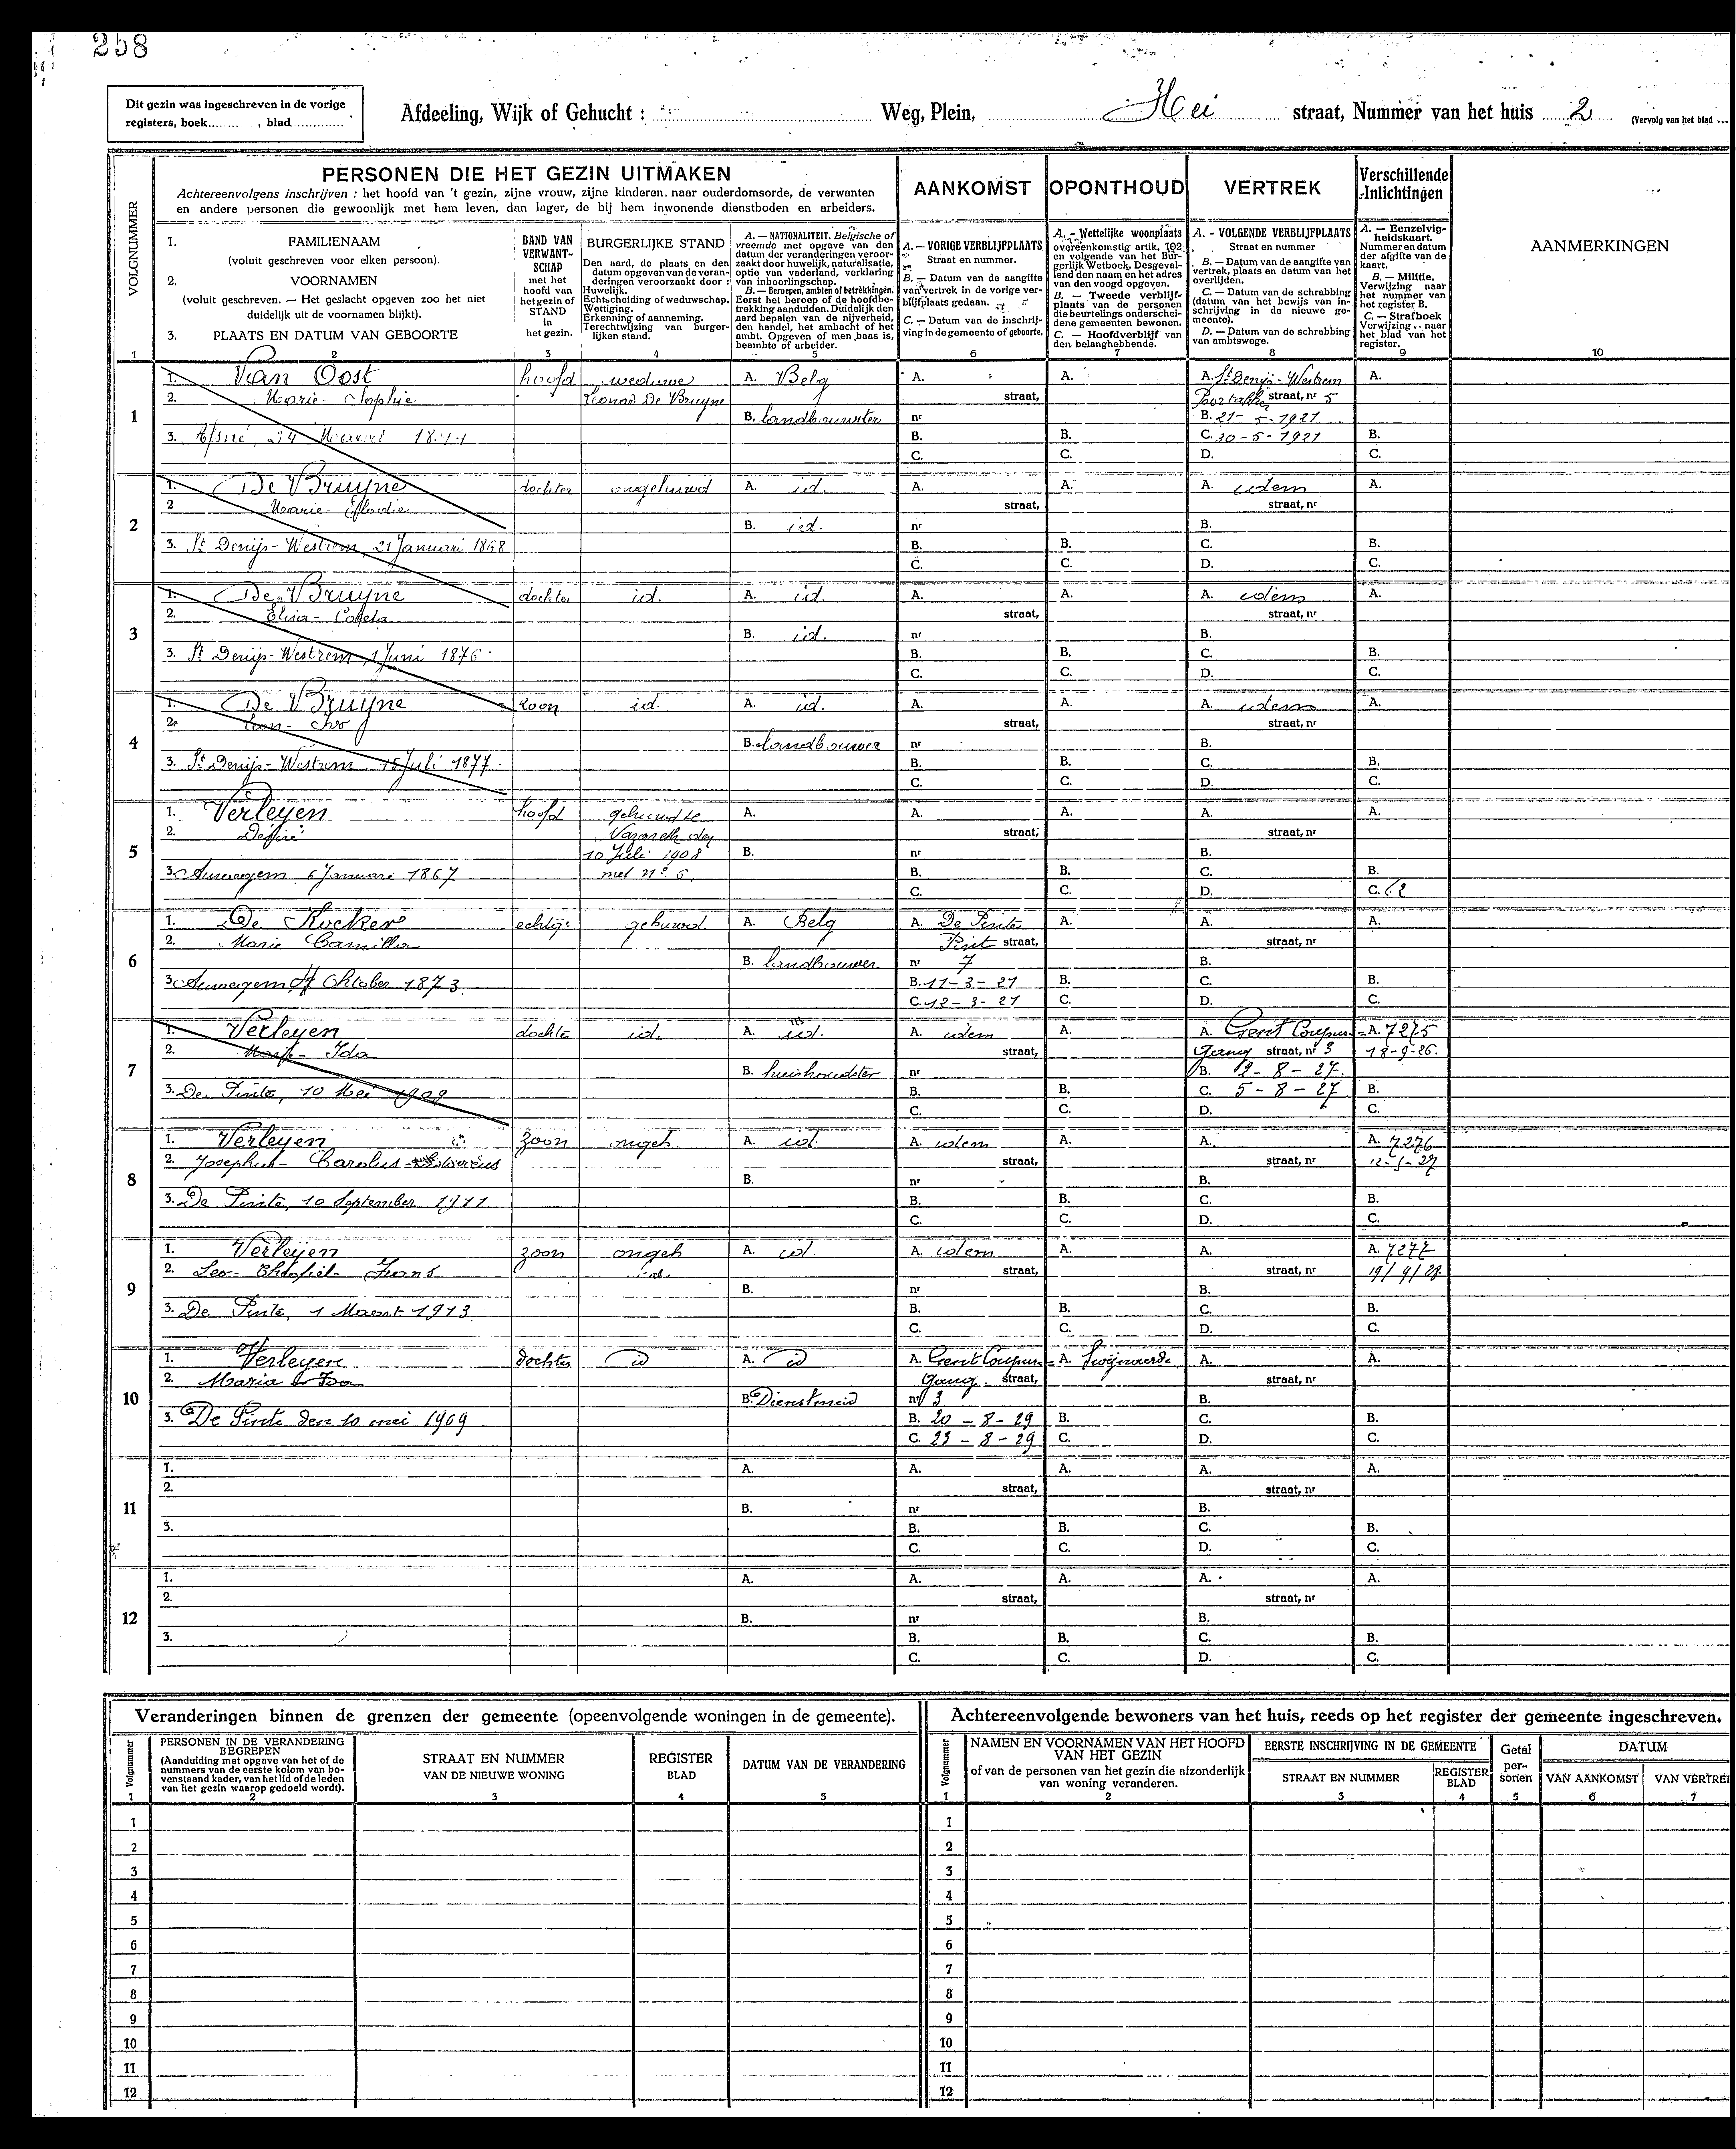 258
Dit gezin was ingeschreven in de vorige
registers, boek ........ , blad ............
Afdeeling, Wijk of Gehucht : Weg, Plein, Hei straat, Nummer van het huis 2 (Vervolg van het blad ...
VOLGNUMMER
PERSONEN DIE HET GEZIN UITMAKEN
Achtereenvolgens inschrijven : het hoofd van 't gezin, zijne vrouw, zijne kinderen. naar ouderdomsorde, de verwanten
en andere personen die gewoonlijk met hem leven, dan lager, de bij hem inwonende dienstboden en arbeiders.
AANKOMST
OPONTHOUD
VERTREK
Verschillende
Inlichtingen
1. FAMILIENAAM
(voluit geschreven voor elken persoon).
2. VOORNAMEN
(voluit geschreven. — Het geslacht opgeven zoo het niet
duidelijk uit de voornamen blijkt).
3. PLAATS EN DATUM VAN GEBOORTE
BAND VAN
VERWANT-
SCHAP
met het
hoofd van
het gezin of
STAND
in
het gezin.
BURGERLIJKE STAND
Den aard, de plaats en den
datum opgeven van de veran-
deringen veroorzaakt door :
Huwelijk.
Echtscheiding of weduwschap.
Wettiging.
Erkenning of aanneming.
Terechtwijzing van burger-
lijken stand.
A. — NATIONALITEIT. Belgische of
vreemde met opgave van den
datum der veranderingen veroor-
zaakt door huwelijk, naturalisatie,
optie van vaderland, verklaring
van inboorlingschap.
B. — Beroepen, ambten of betrekkingen.
Eerst het beroep of de hoofdbe-
trekking aanduiden. Duidelijk den
aard bepalen van de nijverheid,
den handel, het ambacht of het
ambt. Opgeven of men baas is,
beambte of arbeider.
A. — VORIGE VERBLIJFPLAATS
Straat en nummer.
B. — Datum van de aangifte
van vertrek in de vorige ver-
blijfplaats gedaan.
C. — Datum van de inschrij-
ving in de gemeente of geboorte.
A. - Wettelijke woonplaats
overeenkomstig artik. 102
en volgende van het Bur-
gerlijk Wetboek, Desgeval-
lend den naam en het adres
van den voogd opgeven.
B. — Tweede verblijf-
plaats van de personen
die beurtelings onderschei-
dene gemeenten bewonen.
C. — Hoofdverblijf van
den belanghebbende.
A. - VOLGENDE VERBLIJFPLAATS
Straat en nummer
B. — Datum van de aangifte van
vertrek, plaats en datum van het
overlijden.
C. — Datum van de schrabbing
(datum van het bewijs van in-
schrijving in de nieuwe ge-
meente).
D. — Datum van de schrabbing
van ambtswege.
A. — Eenzelvig-
heidskaart.
Nummer en datum
der afgifte van de
kaart.
B. — Militie.
Verwijzing naar
het nummer van
het register B.
C. — Strafboek
Verwijzing naar
het blad van het
register.
AANMERKINGEN
1 2 3 4 5 6 7 8 9 10
1
1. Van Oost hoofd weduwe A. Belg A. A. A. St Denijs-Westrem A.
2. Marie-Sophie Leonard De Bruyne straat, straat, nr 5
B. landbouwster nr B. 21-5-1921
3. 24 1844 B. B. C. 30-5-1921 B.
C. C. D. C.
2
1. De Bruyne dochter ongehuwd A. id. A. A. A. idem A.
2 Marie-Elodie straat, straat, nr
B. id. nr B.
3. St Denijs-Westrem, 21 Januari 1868 B. B. C. B.
C. C. D. C.
3
1. De Bruyne dochter id. A. id. A. A. A. idem A.
2. Elisa-Coleta straat, straat, nr
B. id. nr B.
3. St Denijs-Westrem, 1 Juni 1876 B. B. C. B.
C. C. D. C.
4
1. De Bruyne zoon id. A. id. A. A. A. idem A.
2. Ivo straat, straat, nr
B. landbouwer nr B.
3. St Denijs-Westrem, 15 Juli 1877. B. B. C. B.
C. C. D. C.
5
1. Verleyen hoofd gehuwd te A. A. A. A. A.
2. Désiré Nazareth den straat, straat, nr
10 Juli 1908 B. nr B.
3. 6 Januari 1867 met n° 6. B. B. C. B.
C. C. D. C. 62
6
1. De echtg. gehuwd A. Belg A. De Pinte A. A. A.
2. Marie Camilla Pint straat, straat, nr
B. landbouwer nr 7 B.
3. Oktober 1873. B. 11-3-21 B. C. B.
C. 12-3-21 C. D. C.
7
1. Verleyen dochter id. A. id. A. idem A. A. Gent Coupure= A. 7275
2. Ida straat, Gang straat, nr 3 18-9-26.
B. huishoudster nr B. 2-8-27.
3. De Pinte, 10 Mei 1909 B. B. C. 5-8-27 B.
C. C. D. C.
8
1. Verleyen zoon ongeh. A. id. A. idem A. A. A. 7276
2. Josephus-Carolus- straat, straat, nr
B. nr B.
3. De Pinte, 10 September 1911 B. B. C. B.
C. C. D. C.
9
1. Verleyen zoon ongeh A. id. A. idem A. A. A.
2. Leo- Frans id. straat, straat, nr 19/9/28
B. nr B.
3. De Pinte, 1 Maart 1913 B. B. C. B.
C. C. D. C.
10
1. Verleyen dochter id A. id A. Gent Coupure= A. A. A.
2. Maria Ida Gang. straat, straat, nr
B. Dienstmeid nr 3 B.
3. De Pinte den 10 mei 1909 B. 20-8-29 B. C. B.
C. 23-8-29 C. D. C.
11
1. A. A. A. A. A.
2. straat, straat, nr
B. nr B.
3. B. B. C. B.
C. C. D. C.
12
1. A. A. A. A. A.
2. straat, straat, nr
B. nr B.
3. B. B. C. B.
C. C. D. C.
Veranderingen binnen de grenzen der gemeente (opeenvolgende woningen in de gemeente).
Volgnummer
PERSONEN IN DE VERANDERING
BEGREPEN
(Aanduiding met opgave van het of de
nummers van de eerste kolom van bo-
venstaand kader, van het lid of de leden
van het gezin waarop gedoeld wordt).
STRAAT EN NUMMER
VAN DE NIEUWE WONING
REGISTER
BLAD
DATUM VAN DE VERANDERING
1 2 3 4 5
1
2
3
4
5
6
7
8
9
10
11
12
Achtereenvolgende bewoners van het huis, reeds op het register der gemeente ingeschreven.
Volgnummer
NAMEN EN VOORNAMEN VAN HET HOOFD
VAN HET GEZIN
of van de personen van het gezin die afzonderlijk
van woning veranderen.
EERSTE INSCHRIJVING IN DE GEMEENTE
STRAAT EN NUMMER
REGISTER
BLAD
Getal
per-
sonen
DATUM
VAN AANKOMST
VAN VERTRE
1 2 3 4 5 6 7
1
2
3
4
5
6
7
8
9
10
11
12